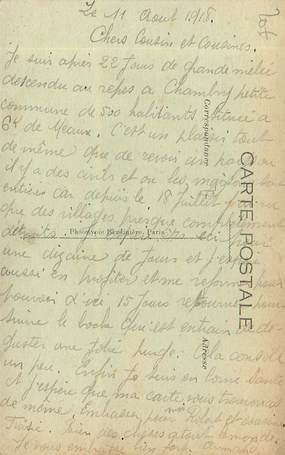 Le 11 Aout 1918.
Chers Cousin et Cousines.
Je suis après 22 Jours de grande mêlée
descendu au repos a Chambry petite
commune de 500 habitants située a
6K de Meaux. C'est un plaisir tout
de même que de revoir un pays ou
il y a des civils et ou les maisons sont
entières car depuis le 18 Juillet
que des villages presque complètement
détruits
une dizaine de Jours et j'espère
aussi en profiter et me reformer pour
pouvoir d'ici 15 Jours retourner pour
suivre le boche qui est entrain de dé-
guster une Jolie purge. Cela console
un peu. Enfin Je suis en bonne Santé
et J'espère que ma carte vous trouvera
de même. Embrassez pour moi Robert et cousine
Bien des choses a tout le monde.
Je vous embrasse bien fort.
CARTE POSTALE
Correspondance
Adresse
Phototypie Berthaud, Paris